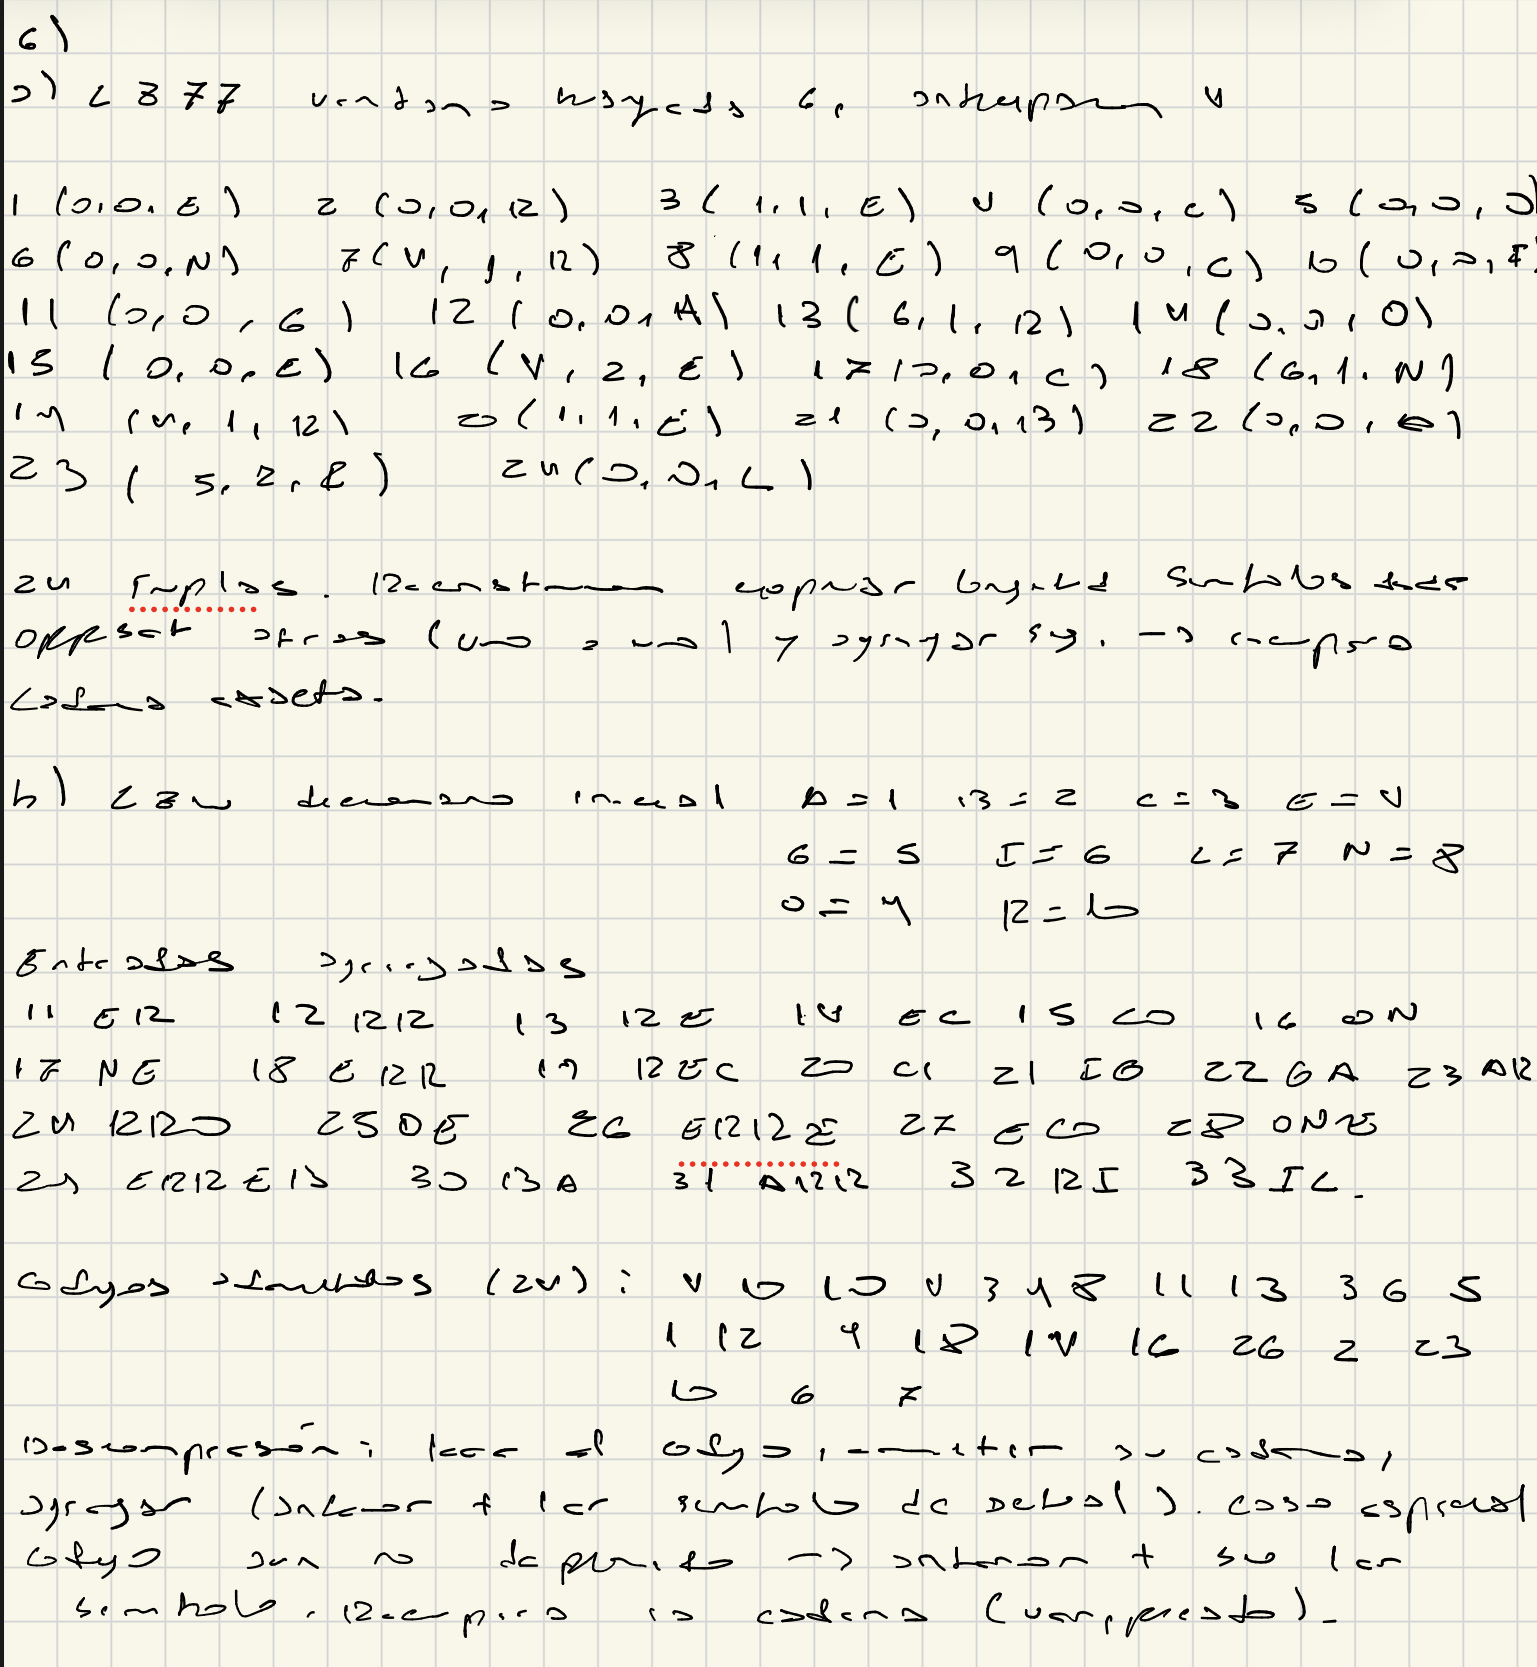 6)
a) LZ77 ventana busqueda 6, anticipacion 4
1 (0,0,E) 2 (0,0,R) 3 (1,1,E) 4 (0,0,C) 5 (0,0,O)
6 (0,0,N) 7 (4,1,R) 8 (1,1,E) 9 (0,0,C) 10 (0,0,I)
11 (0,0,G) 12 (0,0,A) 13 (6,1,R) 14 (0,0,O)
15 (0,0,E) 16 (4,2,E) 17 (0,0,C) 18 (6,1,N)
19 (4,1,R) 20 (1,1,E) 21 (0,0,B) 22 (0,0,A)
23 (5,2,I) 24 (0,0,L)
24 Tuplas. Reconstruccion copiar longitud simbolos desde
offset atras (uno a uno) y agregar sig. -> recupera
cadena exacta.
b) LZW diccionario inicial A = 1 B = 2 C = 3 E = 4
G = 5 I = 6 L = 7 N = 8
O = 9 R = 10
Entradas agregadas
11 ER 12 RR 13 RE 14 EC 15 CO 16 ON
17 NE 18 ERR 19 REC 20 CI 21 IG 22 GA 23 AR
24 RRO 25 OE 26 ERRE 27 ECO 28 ONE
29 ERREB 30 BA 31 ARR 32 RI 33 IL.
Codigos (24): 4 10 10 4 3 9 8 11 13 3 6 5
1 12 9 18 14 16 26 2 23
10 6 7
Descompresión: leer el codigo, emitir su cadena,
agregar (anterior + 1er simbolo de actual). Caso especial
codigo aun no definido -> anterior + su 1er
simbolo. Recupera la cadena (verificado).